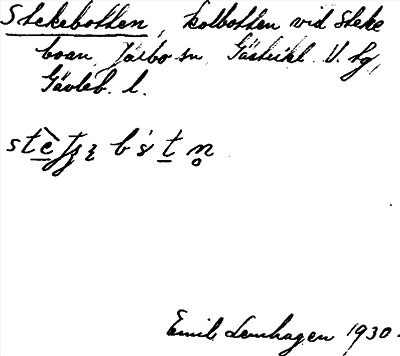 Stekebotten, kolbotten vid Steke
boan, Järbo sn, Gästrikl. V. hg,
Gävleb. l.
Emil Lenhagen 1930.